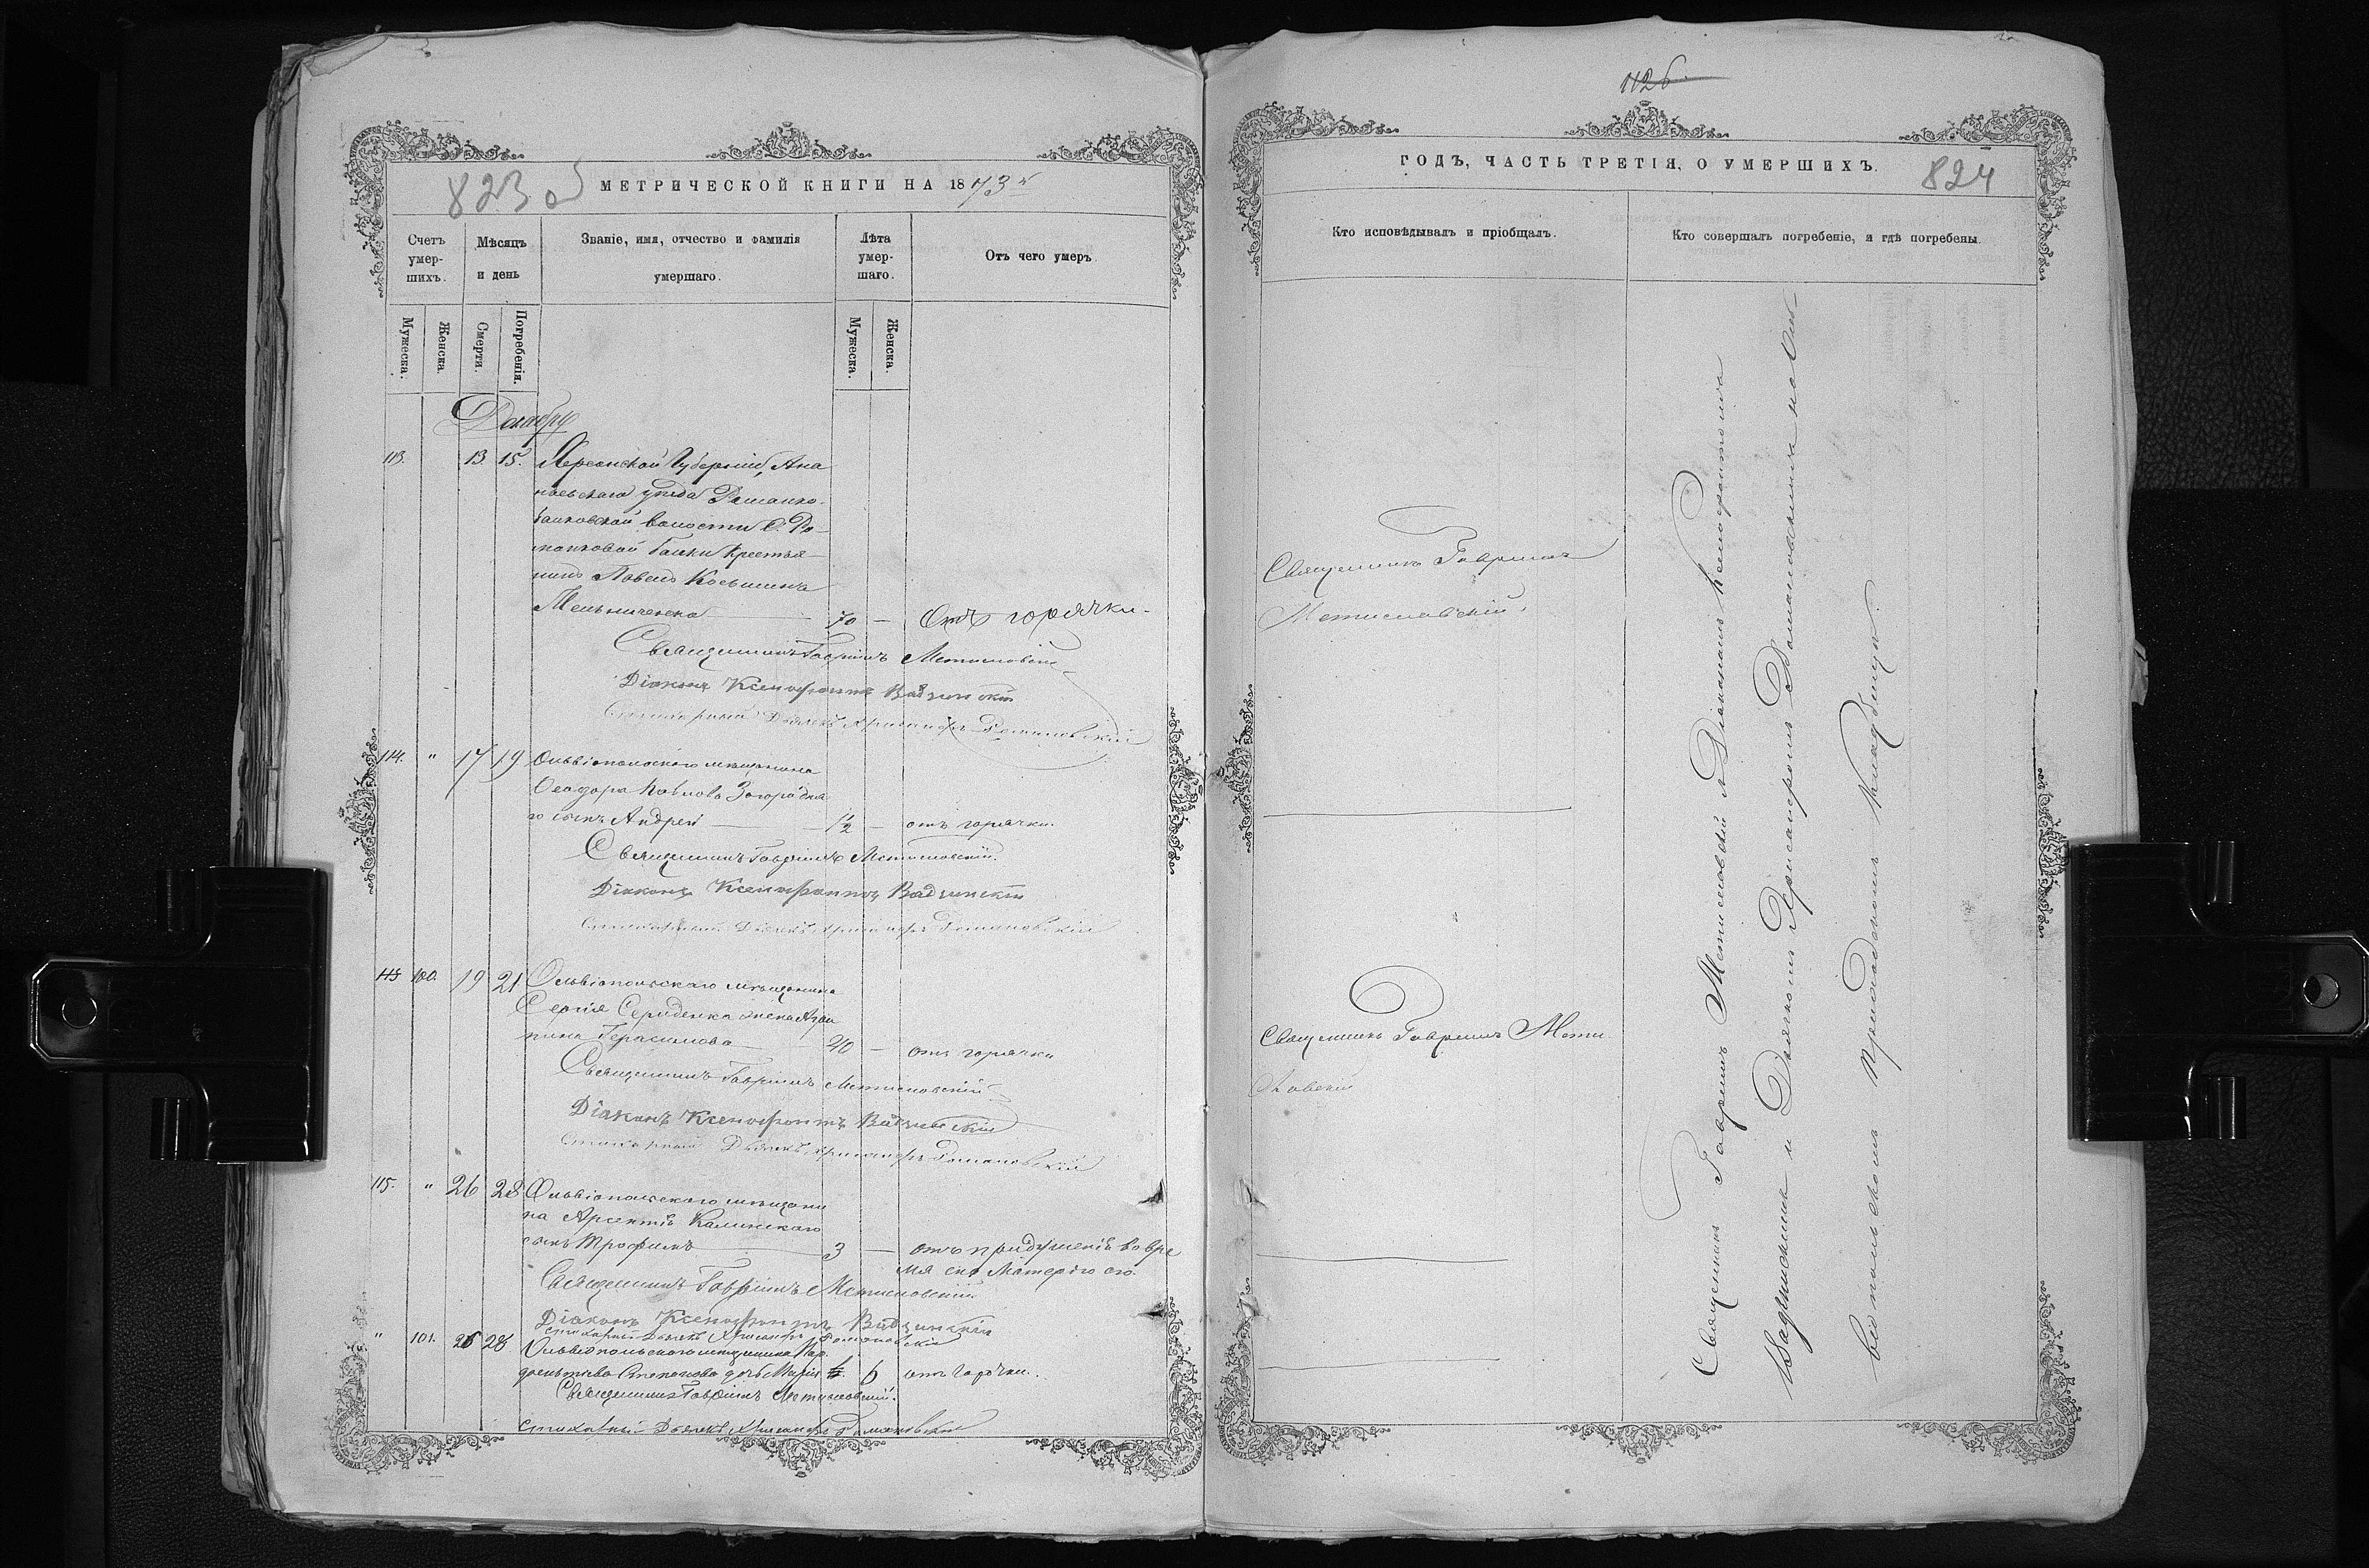 823 об
МЕТРИЧЕСКОЙ КНИГИ НА 1873й
Счетъ умер-шихъ.
Мѣсяцъ и день
Званіе, имя, отчество и фамилія умершаго.
Лѣта умер-шаго.
Отъ чего умеръ
Мужеска.
Женска.
Смерти.
Погребенія.
Мужеска.
Женска.
Декабрь
113. 13 15. Херсонской Губерніи, Ана
ньевскаго уѣзда Романко
балковской волости С. Ро-
манковой Балки Крестья-
нинъ Павелъ Косьминъ
Мельниченко 70 — Отъ горячки.
Священникъ Гавріилъ Мстиславскій
Діаконъ Ксенофонтъ Вадзинскій
Стихарный Дьячекъ Хрисанфъ Романовскій
114. " 17 19 Ольвіопольскаго мѣщанина
Ѳеодора Павлова Загородня
го сынъ Андрей 1/2 — отъ горячки.
Священникъ Гавріилъ Мстиславскій.
Діаконъ Ксенофонтъ Вадзинскій
Стихарный Дьячекъ Хрисанфъ Романовскій
115 100. 19 21 Ольвіопольскаго мѣщанина
Сергія Середенка жена Агри
пина Герасимова 40 — отъ горячки
Священникъ Гавріилъ Мстиславскій
Діаконъ Ксенофонтъ Вадзинскій
Стихарный Дьячекъ Хрисанфъ Романовскій
115. " 26 28 Ольвіопольскаго мѣщани
на Арсентія Калинскаго
сынъ Трофимъ 3 — отъ придушенія во вре
мя сна Матерію его.
Священникъ Гавріилъ Мстиславскій
Діаконъ Ксенофонтъ Вадзинскій
Стихарный Дьячекъ Хрисанфъ Романовскій
" 101. 26 28 Ольвіопольскаго мѣщанина
Степанова дочь Марія 6 отъ горячки.
Священникъ Гавріилъ Мстиславскій.
Стихарный Дьячекъ Хрисанфъ Романовскій
1126
ГОДЪ, ЧАСТЬ ТРЕТІЯ, О УМЕРШИХЪ.
824
Кто исповѣдывалъ и пріобщалъ.
Кто совершалъ погребеніе, и гдѣ погребены.
Священникъ Гавріилъ
Мстиславскій.
Священникъ Гавріилъ Мсти
славскій
Священникъ Гавріилъ Мстиславскій съ Діакономъ Ксенофонтомъ
Вадзинскимъ и Дьячкомъ Хрисанфомъ Романовскимъ на Оль-
віопольскомъ приходскомъ кладбищѣ.